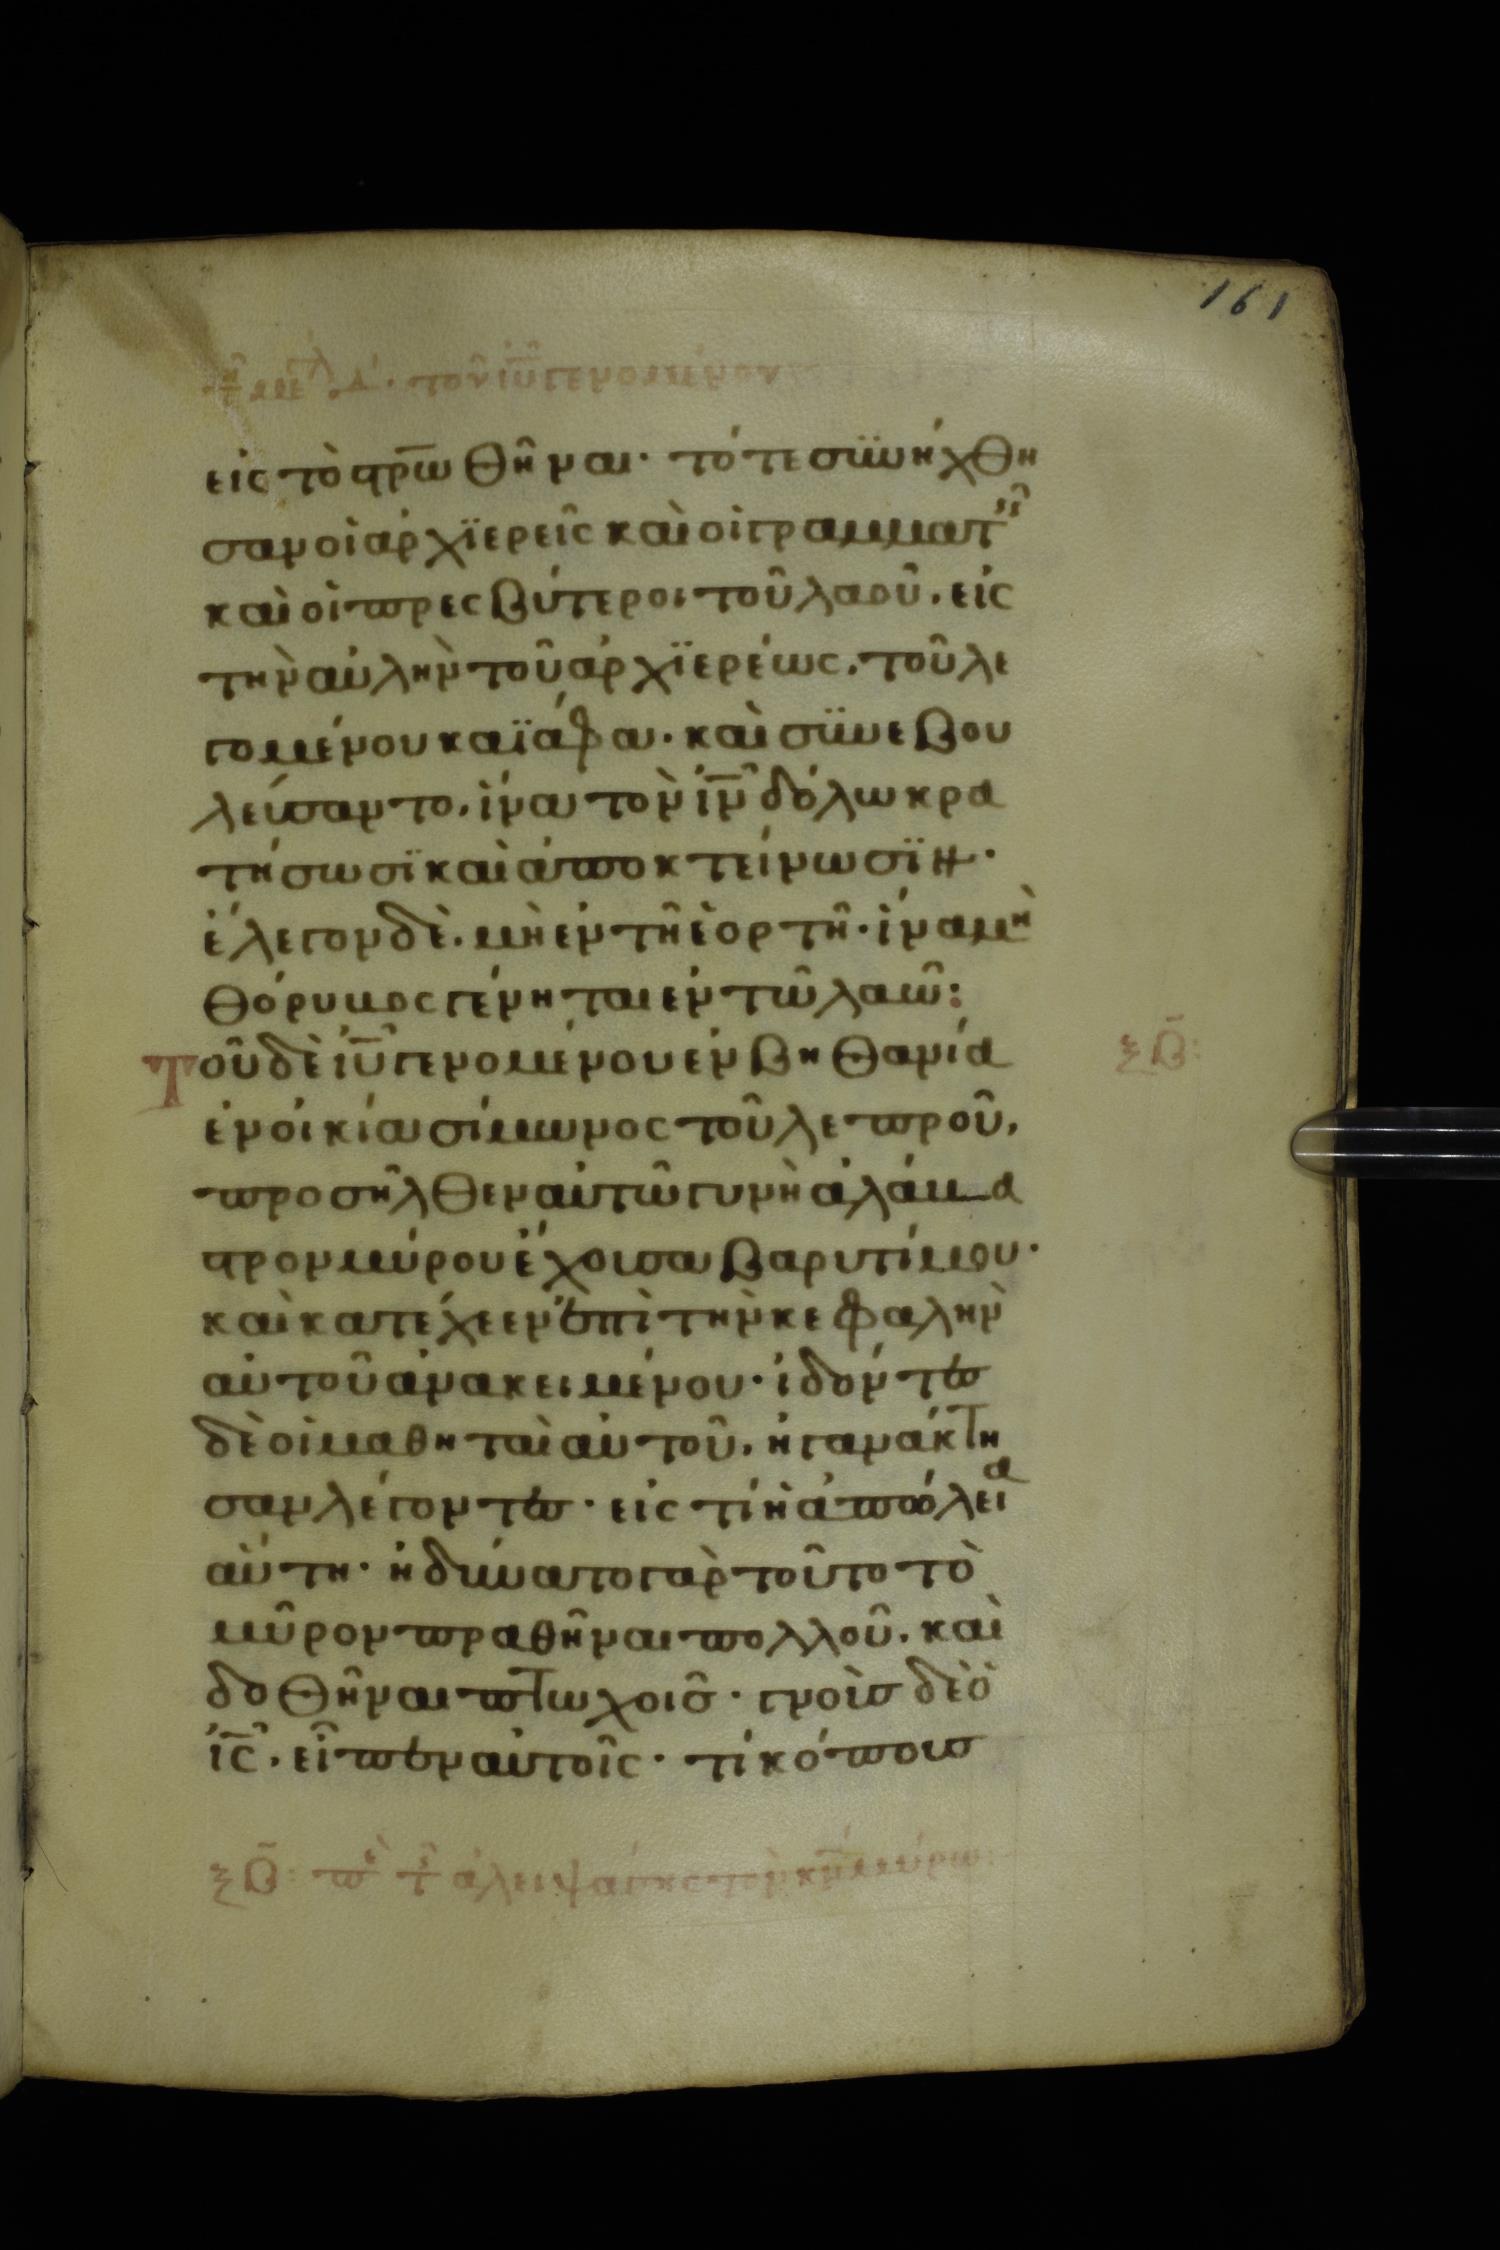 161
εἰς τὸ σρ̅ωθῆναι· τότε συνήχθη
σαν οἱ ἀρχϊερεῖς καὶ οἱ γραμματ
καὶ οἱ πρεσβύτεροι τοῦ λαοῦ. εἰς
τὴν αὐλὴν τοῦ ἀρχϊερέως. τοῦ λε
γομένου καϊάφα. καὶ συνεβου
λεύσαντο. ἵνα τὸν ἰ̅ν̅ δόλω κρα
τήσωσϊ καὶ ἀποκτείνωσϊν·
ἔλεγον δὲ. μὴ ἐν τῆ ἑορτῆ· ἵνα μὴ
θόρυβος γένηται ἐν τῶ λαῶ:
Τοῦ δὲ ἰ̅υ̅ γενομένου ἐν βηθανία
ἐν οἰκία σίμωνος τοῦ λεπροῦ,
προσῆλθεν αὐτῶ γυνὴ ἀλάβα
στρον μύρου ἔχουσα βαρυτίμου·
καὶ κατέχεεν ἐπὶ τὴν κεφαλὴν
αὐτοῦ ἀνακειμένου· ἰδόντες
δὲ οἱ μαθηταὶ αὐτοῦ, ἠγανάκτη
σαν λέγοντες· εἰς τί ἡ ἀπώλεια
αὕτη· ἠδύνατο γὰρ τοῦτο τὸ
μῦρον πραθῆναι πολλοῦ. καὶ
δοθῆναι πτωχοῖς· γνοὺς δὲ ὁ
ἰ̅ς̅. εἶπεν αὐτοῖς· τί κόπους
ξβ:
ξβ: π τ ἀλειψάσης τὸν κ̅ν̅ μύρω: